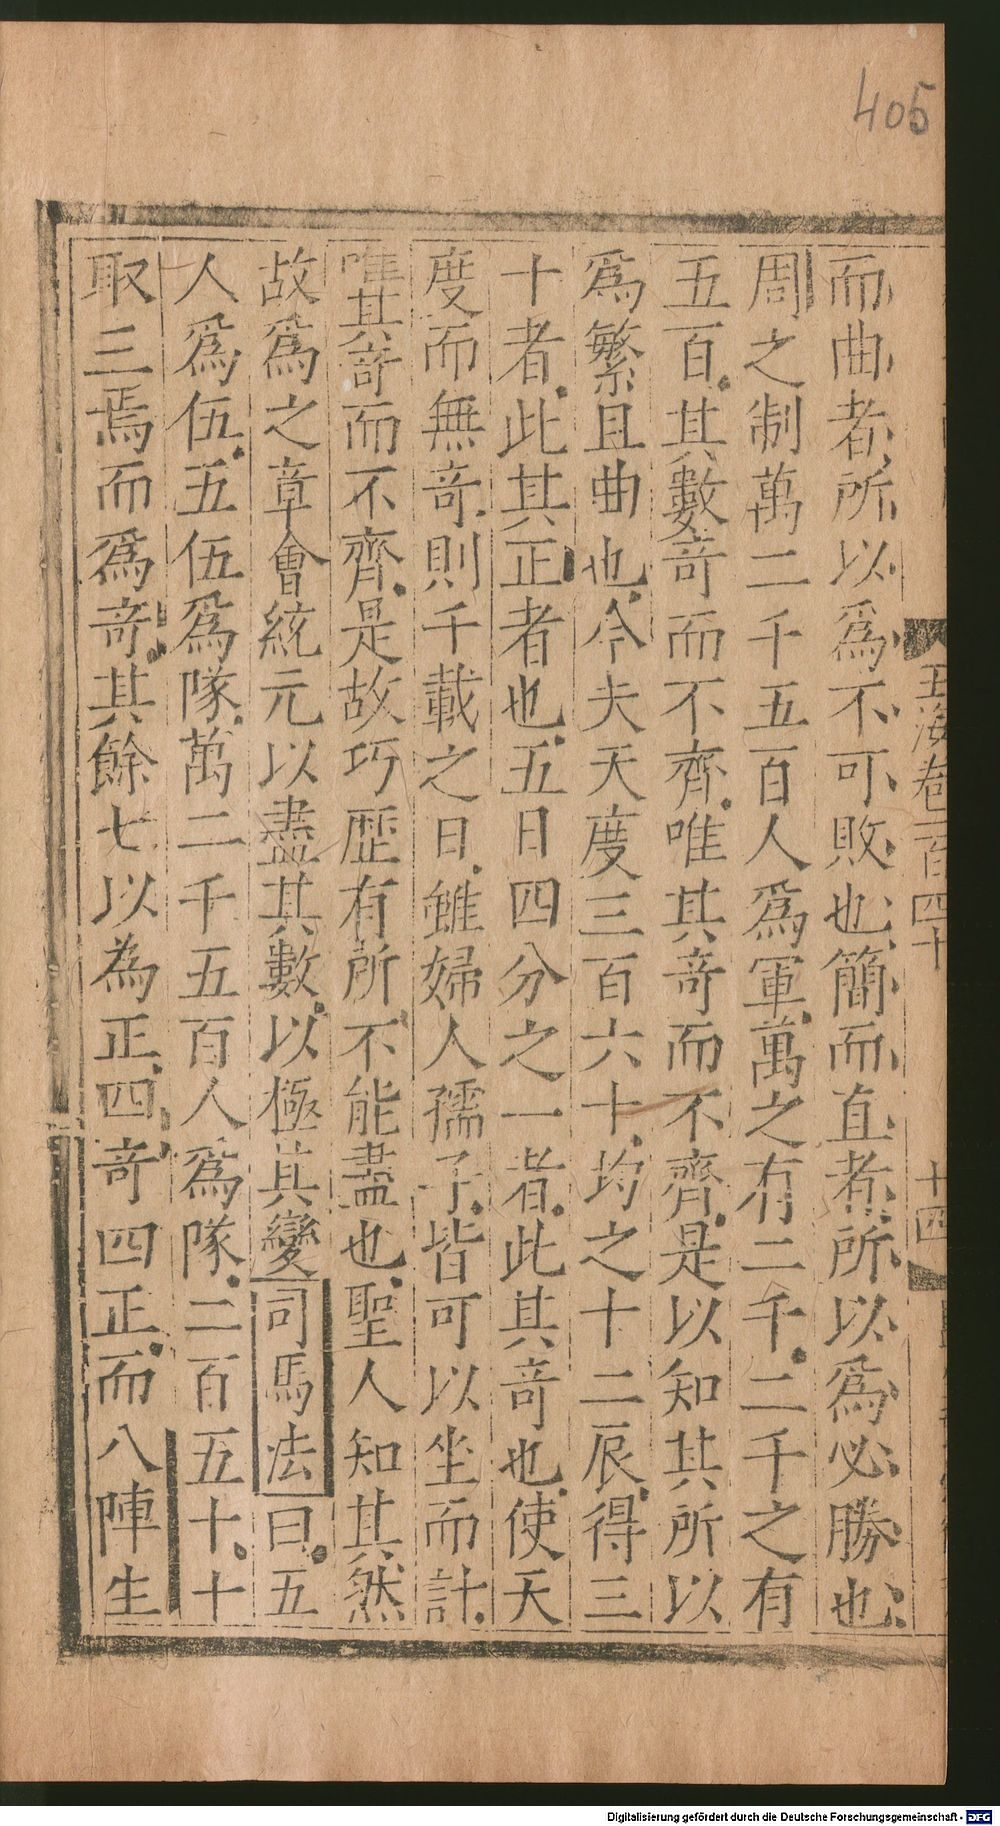 405
玉海卷一百四十
十四
而曲者所以爲不可敗也簡而直者所以爲必勝也
周之制萬二千五百人爲軍萬之有二千二千之有
五百其數竒而不齊唯其竒而不齊是以知其所以
爲繁且曲也今夫天度三百六十均之十二辰得三
十者此其正者也五日四分之一者此其竒也使天
度而無竒則千載之日雖婦人孺子皆可以坐而計
唯其竒而不齊是故巧歴有所不能盡也聖人知其然
故爲之章會統元以盡其數以極其變司馬法曰五
人爲伍五伍爲隊萬二千五百人爲隊二百五十十
取三焉而爲竒其餘七以為正四竒四正而八陣生
Digitalisierung gefördert durch die Deutsche Forschungsgemeinschaft - DFG